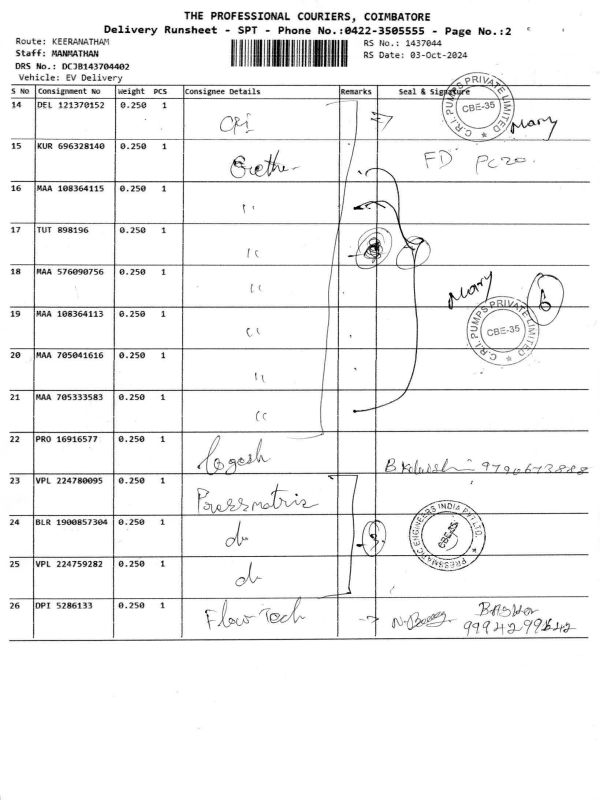 THE PROFESSIONAL COURIERS, COIMBATORE
Delivery Runsheet - SPT - Phone No.:0422-3505555 - Page No.:2
Route: KEERANATHAM
RS No.: 1437044
Staff: MANMATHAN
RS Date: 03-Oct-2024
DRS No.: DCJB143704402
Vehicle: EV Delivery
S No Consignment No Weight PCS Consignee Details Remarks Seal & Signature
14 DEL 121370152 0.250 1 CRI
C.R.I. PUMPS PRIVATE LIMITED
CBE-35
Mary
15 KUR 696328140 0.250 1 FD
16 MAA 108364115 0.250 1 "
17 TUT 898196 0.250 1 "
18 MAA 576090756 0.250 1 "
Mary 6
19 MAA 108364113 0.250 1 "
C.R.I. PUMPS PRIVATE LIMITED
CBE-35
20 MAA 705041616 0.250 1 "
21 MAA 705333583 0.250 1 "
22 PRO 16916577 0.250 1 Yogesh
23 VPL 224780095 0.250 1 Pressmatric
24 BLR 1900857304 0.250 1 do 3
PRESSMATIC ENGINEERS INDIA PVT LTD.
CBE-35
25 VPL 224759282 0.250 1 do
26 DPI 5286133 0.250 1 Flow Tech